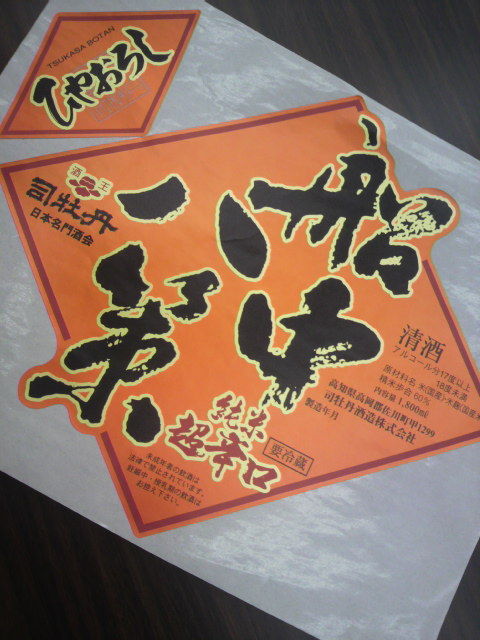 TSUKASA BOTAN
ひやおろし
酒王
司牡丹
日本名門酒会
船中
八策
純米
超辛口
要冷蔵
清酒
アルコール分17度以上
18度未満
原材料名 米(国産)・米麹(国産米)
精米歩合 60%
内容量 1,800ml
高知県高岡郡佐川町甲1299
司牡丹酒造株式会社
製造年月
未成年者の飲酒は
法律で禁止されています。
妊娠中、授乳期の飲酒は
お控え下さい。